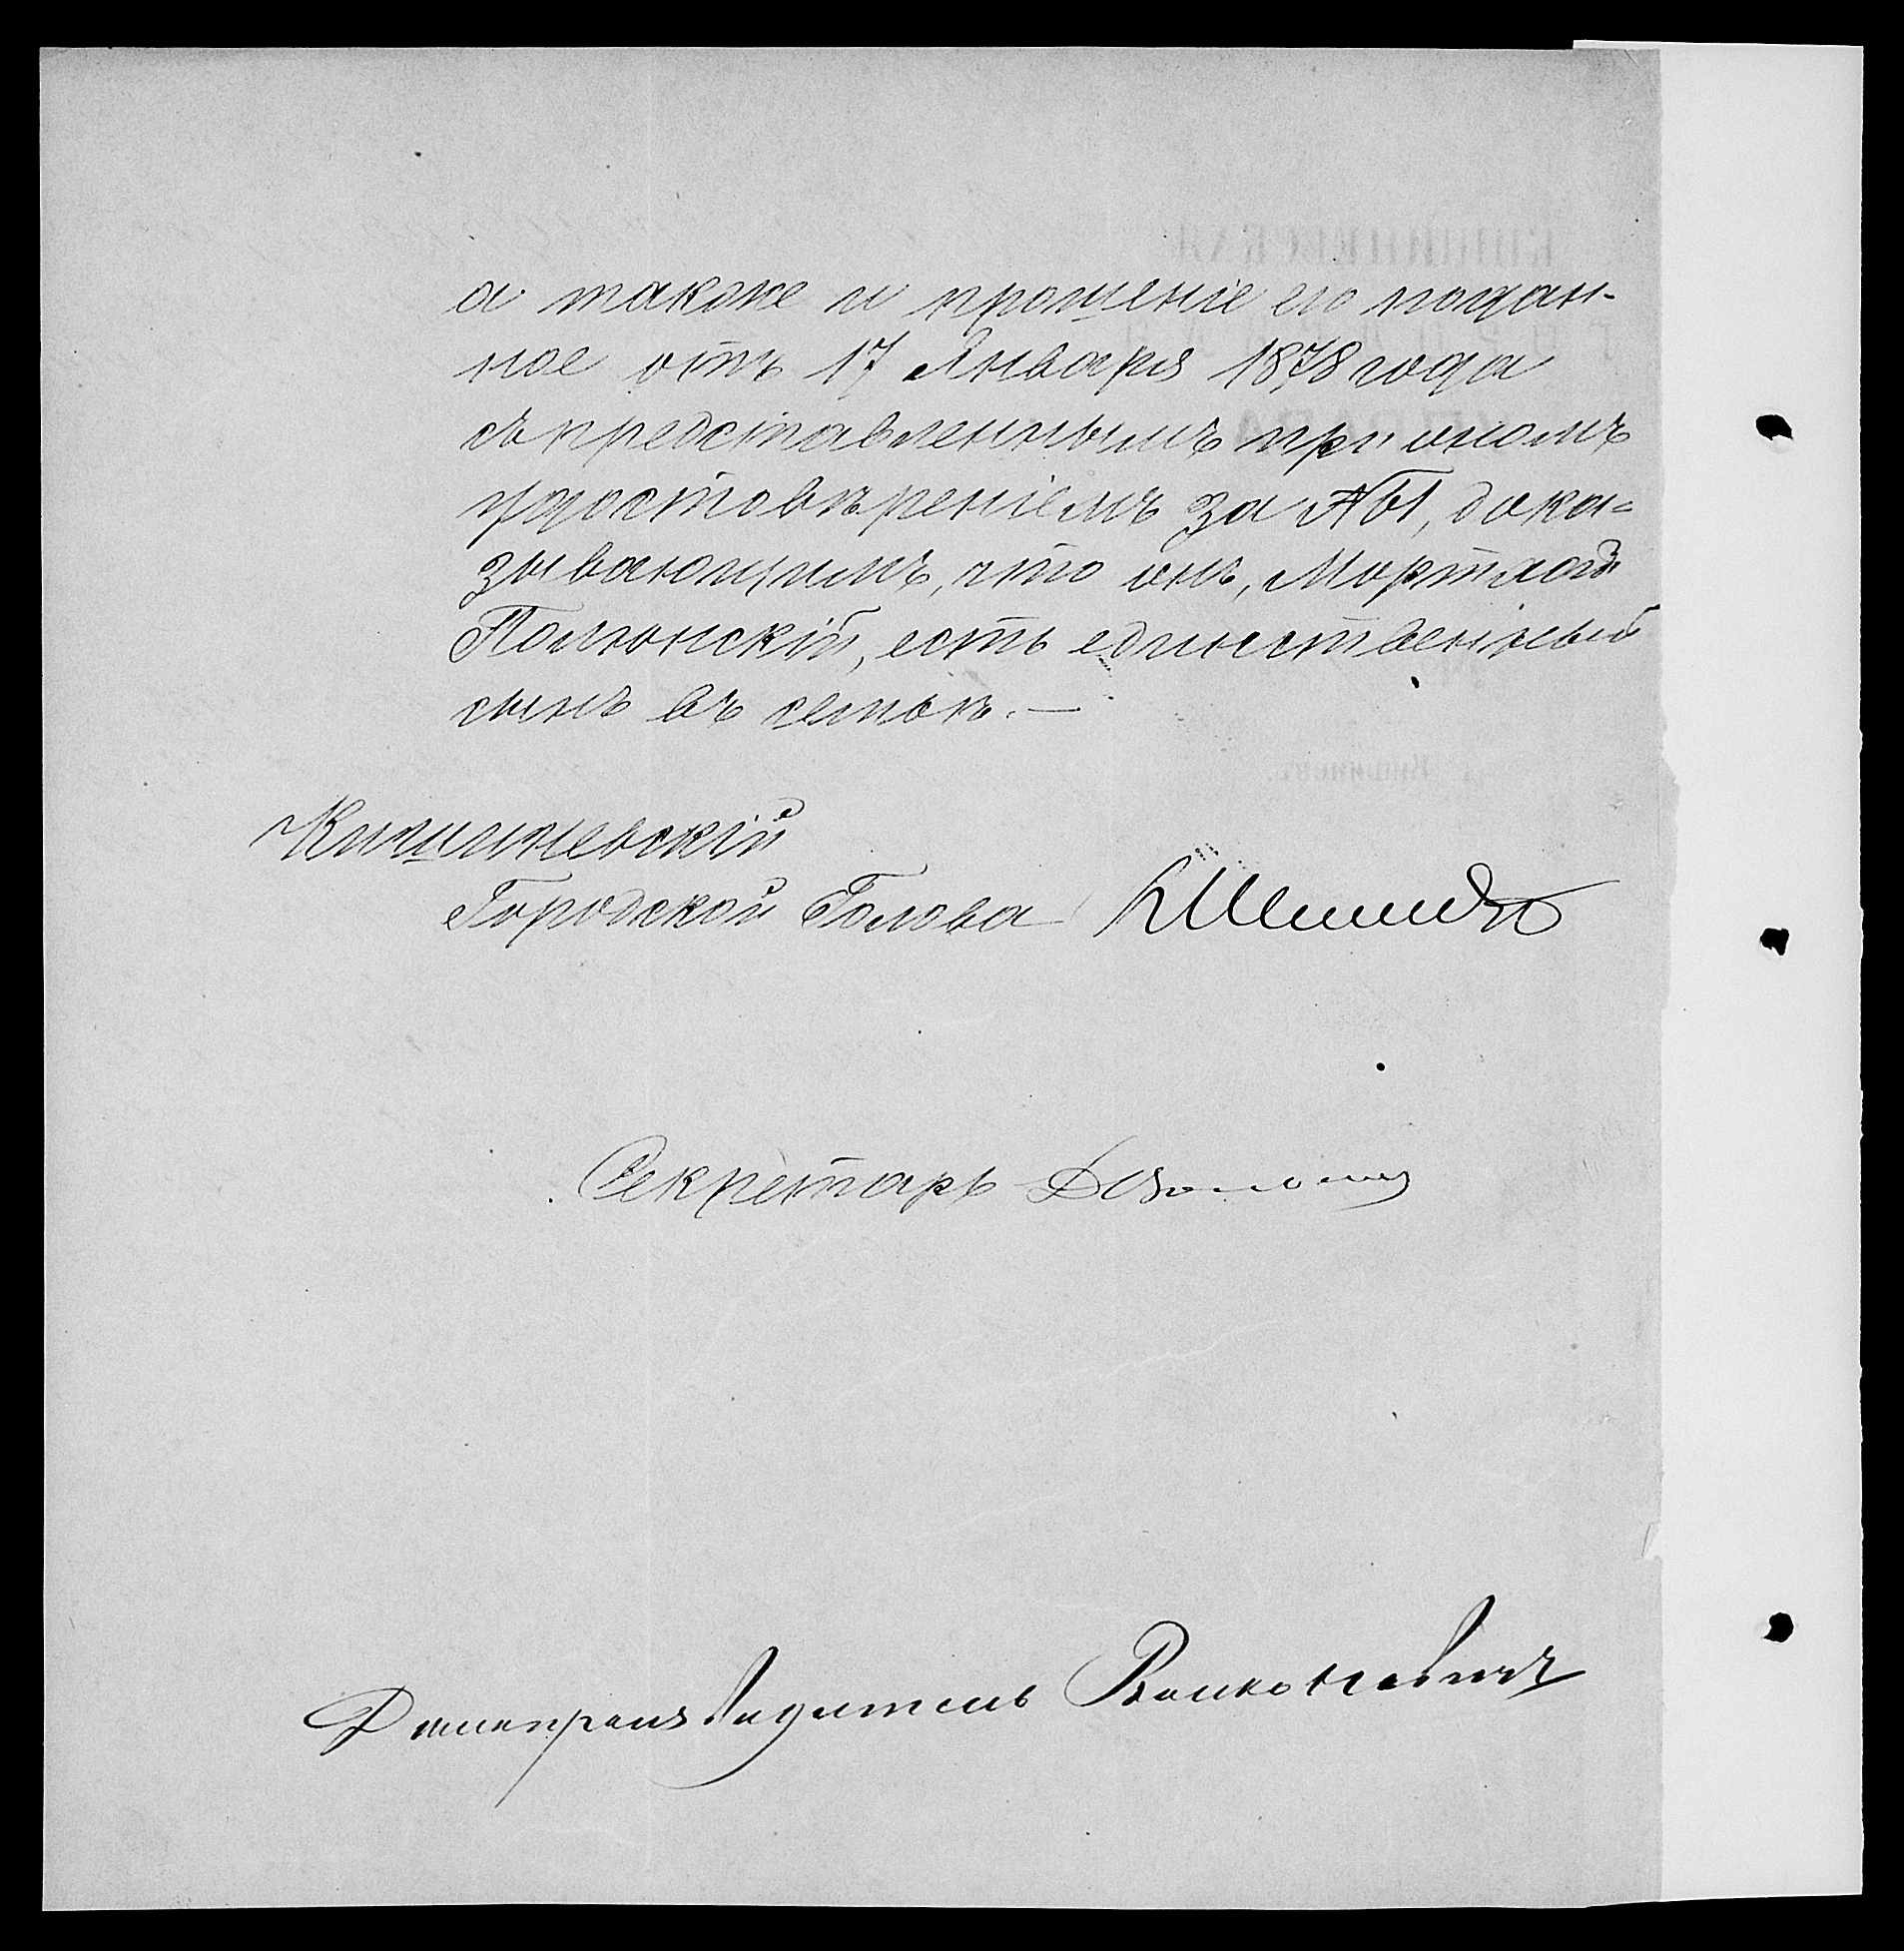 а также и прошеніе его подан-
ное отъ 17 Января 1878 года
съ представленнымъ при ономъ
удостовѣреніемъ за №1, дока=
зывающимъ, что онъ, Мортхай
Полонскій, есть единственный
сынъ въ семьѣ. —
Кишиневскій
Городской Голова К Шмидтъ
Секретарь
Дѣлопроизводитель